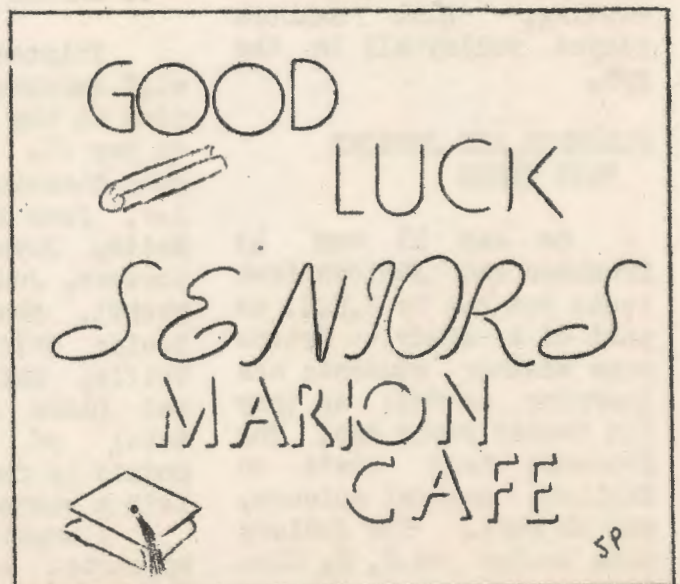 GOOD
LUCK
SENIORS
MARION
CAFE
SP